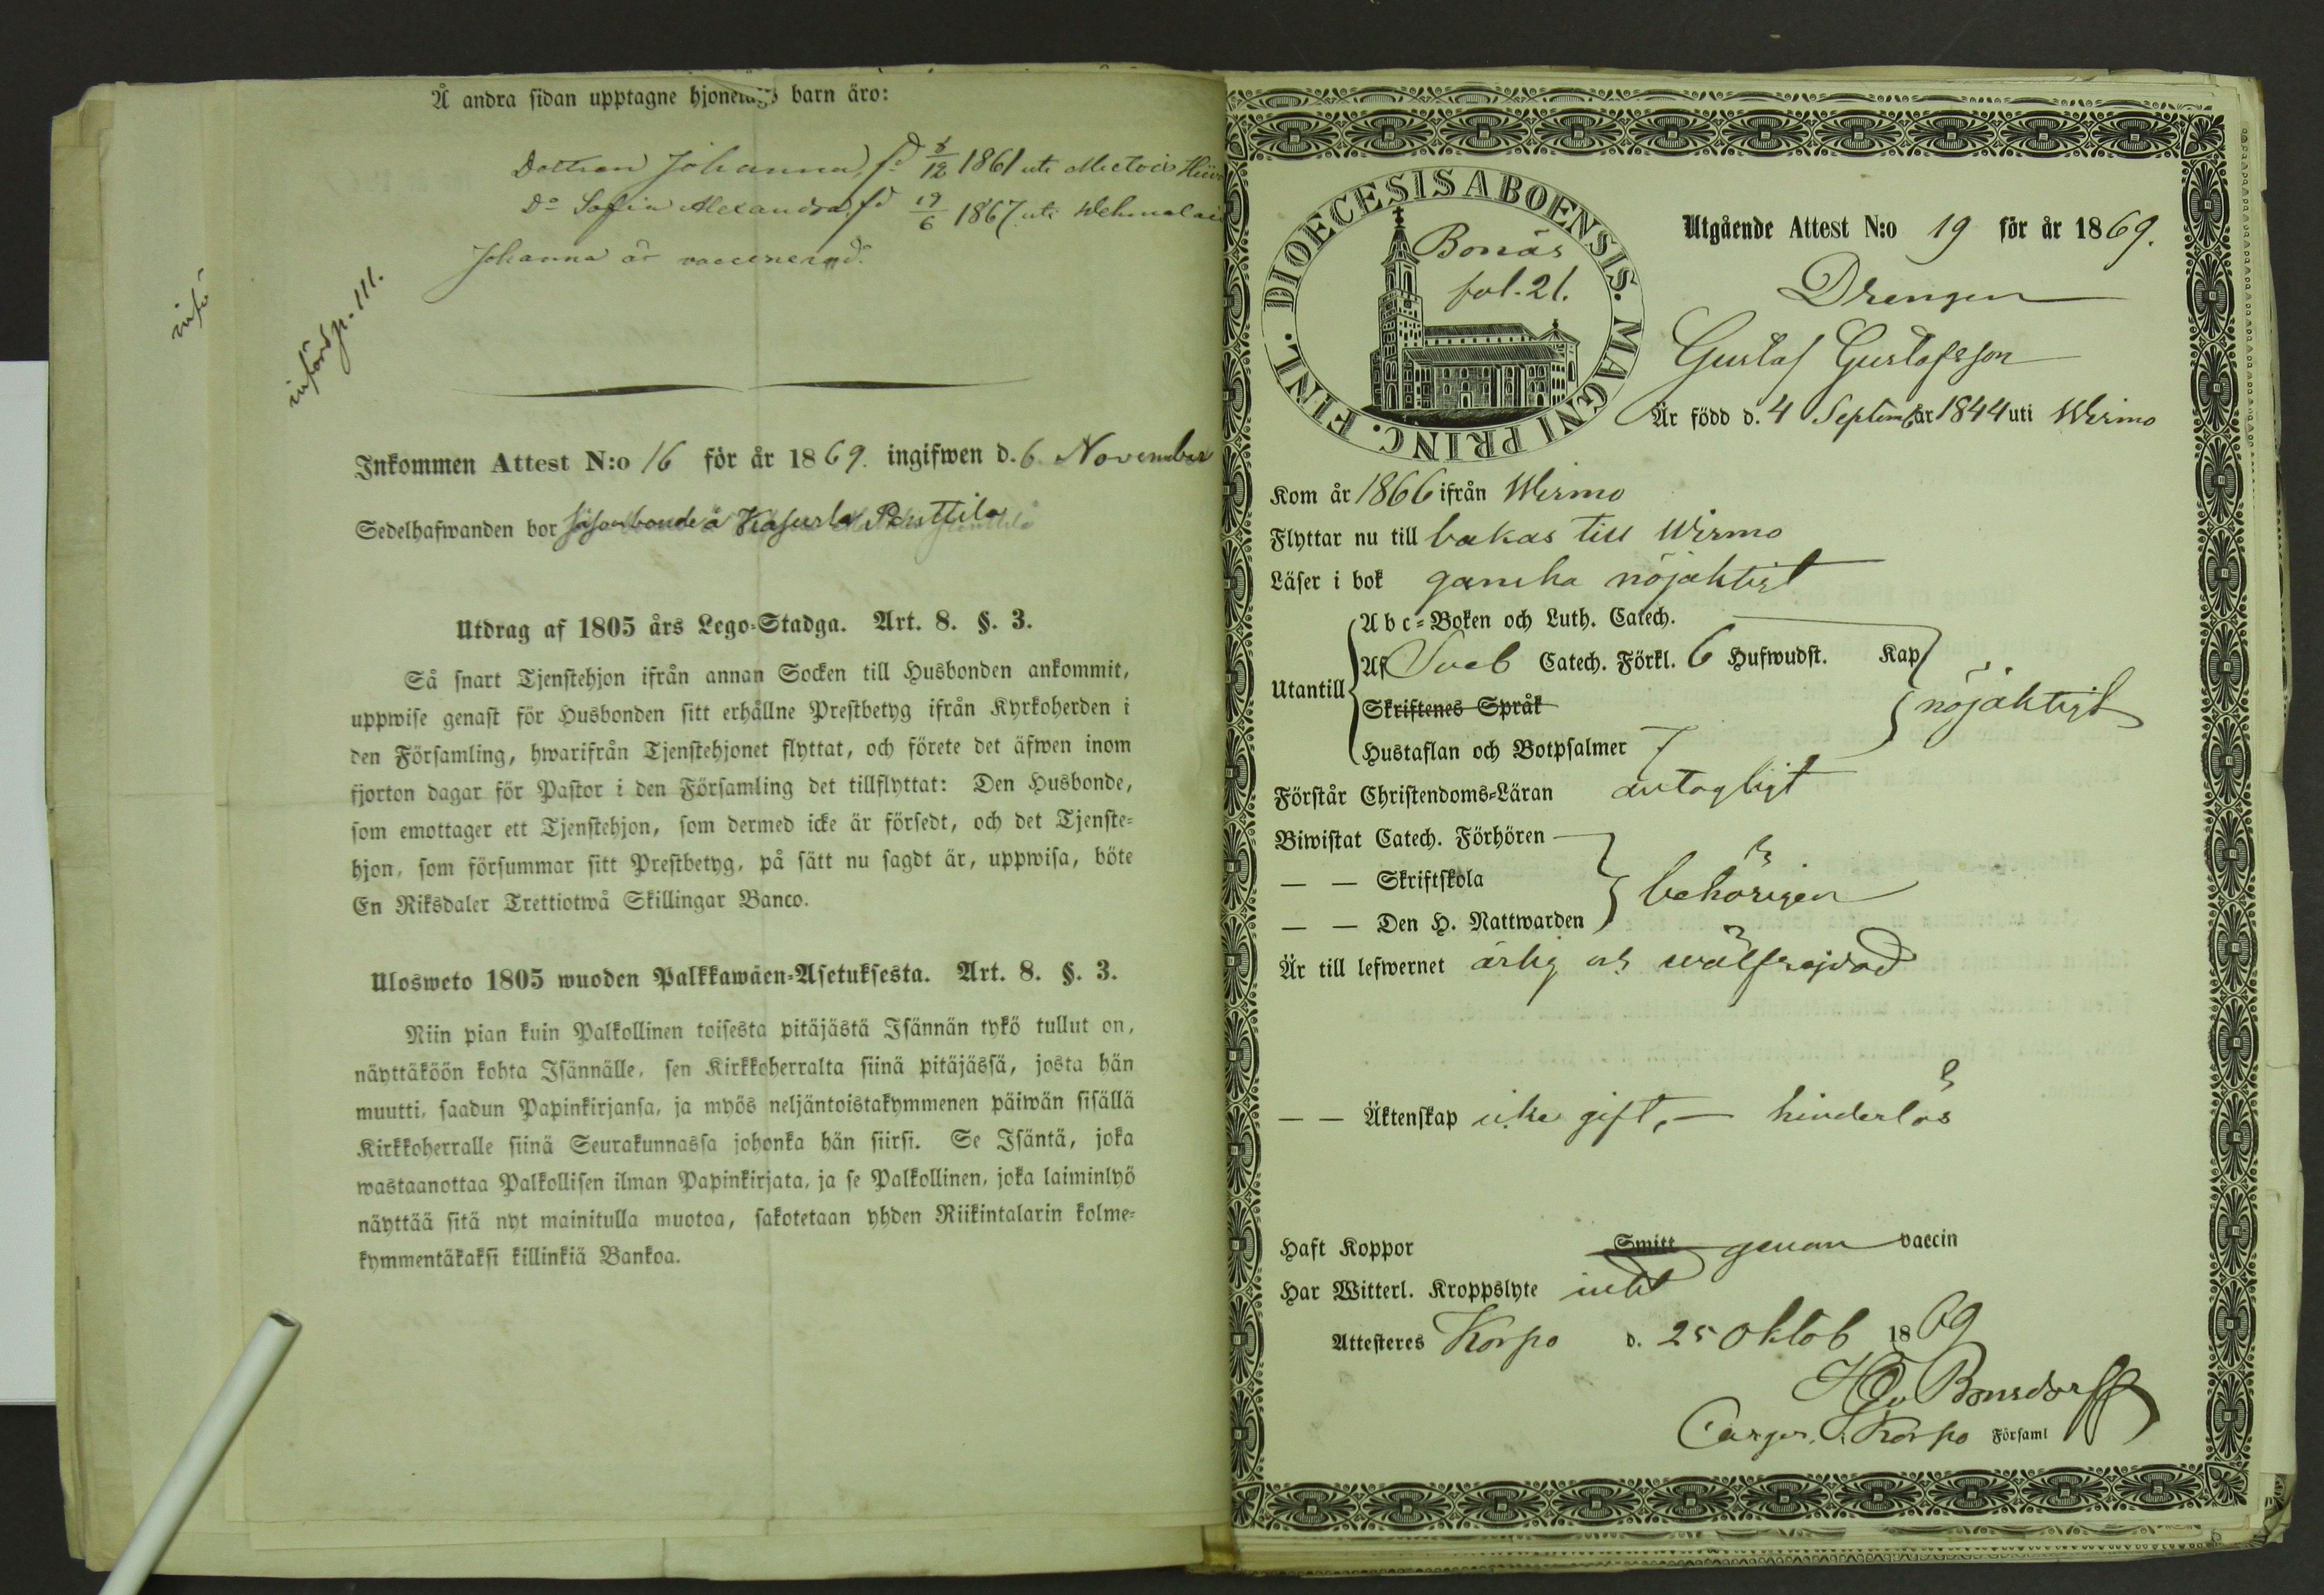 Å andra sidan upptagne hjonelags barn äro:
Dottren Johanna, fd 8/12 1861 uti Mietois
Do Sofia Alexandra, fd 19/6 1867. uti Wehmalai
Johanna är vaccinerad.
inf
införd p. 111.
Inkommen Attest N:o 16 för år 1869. ingifwen d. 6 November
Sedelhafwanden bor såsom bonde å Kasurla Perttila
Utdrag af 1805 års Lego-Stadga. Art. 8. §. 3.
Så snart Tjenstehjon ifrån annan Socken till Husbonden ankommit,
uppwise genast för Husbonden sitt erhållne Prestbetyg ifrån Kyrkoherden i
den Församling, hwarifrån Tjenstehjonet flyttat, och förete det äfwen inom
fjorton dagar för Pastor i den Församling det tillflyttat: Den Husbonde,
som emottager ett Tjenstehjon, som dermed icke är försedt, och det Tjenste-
hjon, som försummar sitt Prestbetyg, på sätt nu sagdt är, uppwisa, böte
En Riksdaler Trettiotwå Skillingar Banco.
Ulosweto 1805 wuoden Palkkawäen-Asetuksesta. Art. 8. §. 3.
Niin pian kuin Palkollinen toisesta pitäjästä Isännän tykö tullut on,
näyttäköön kohta Isännälle, sen Kirkkoherralta siinä pitäjässä, josta hän
muutti, saadun Papinkirjansa, ja myös neljäntoistakymmenen päiwän sisällä
Kirkkoherralle siinä Seurakunnassa johonka hän siirsi. Se Isäntä, joka
wastaanottaa Palkollisen ilman Papinkirjata, ja se Palkollinen, joka laiminlyö
näyttää sitä nyt mainitulla muotoa, sakotetaan yhden Riikintalarin kolme-
kymmentäkaksi killinkiä Bankoa.
FINL. DIOECESIS ABOENSIS. MAGNI PRINC.
Bonäs
fol. 21.
Utgående Attest N:o 19 för år 1869.
Drengen
Gustaf Gustafsson
Är född d. 4 Septemb år 1844 uti Wirmo
Kom år 1866 ifrån Wirmo
Flyttar nu till bakas till Wirmo
Läser i bok ganska nöjaktigt
Utantill
Abc-Boken och Luth. Catech.
Af Sveb Catech. Förkl. 6 Hufwudst. Kap
Skriftenes Språk
nöjaktigt
Hustaflan och Botpsalmer 7
Förstår Christendoms-Läran antagligt
Biwistat Catech. Förhören
— — Skriftskola
behörigen
— — Den H. Nattwarden
Är till lefwernet ärlig och wälfrejdad
— — Äktenskap icke gift, — hinderlös
Haft Koppor Smitt genom vaccin
Har Witterl. Kroppslyte intet
Attesteres Korpo d. 25 Oktob 1869
Bonsdorff
Korpo Församl